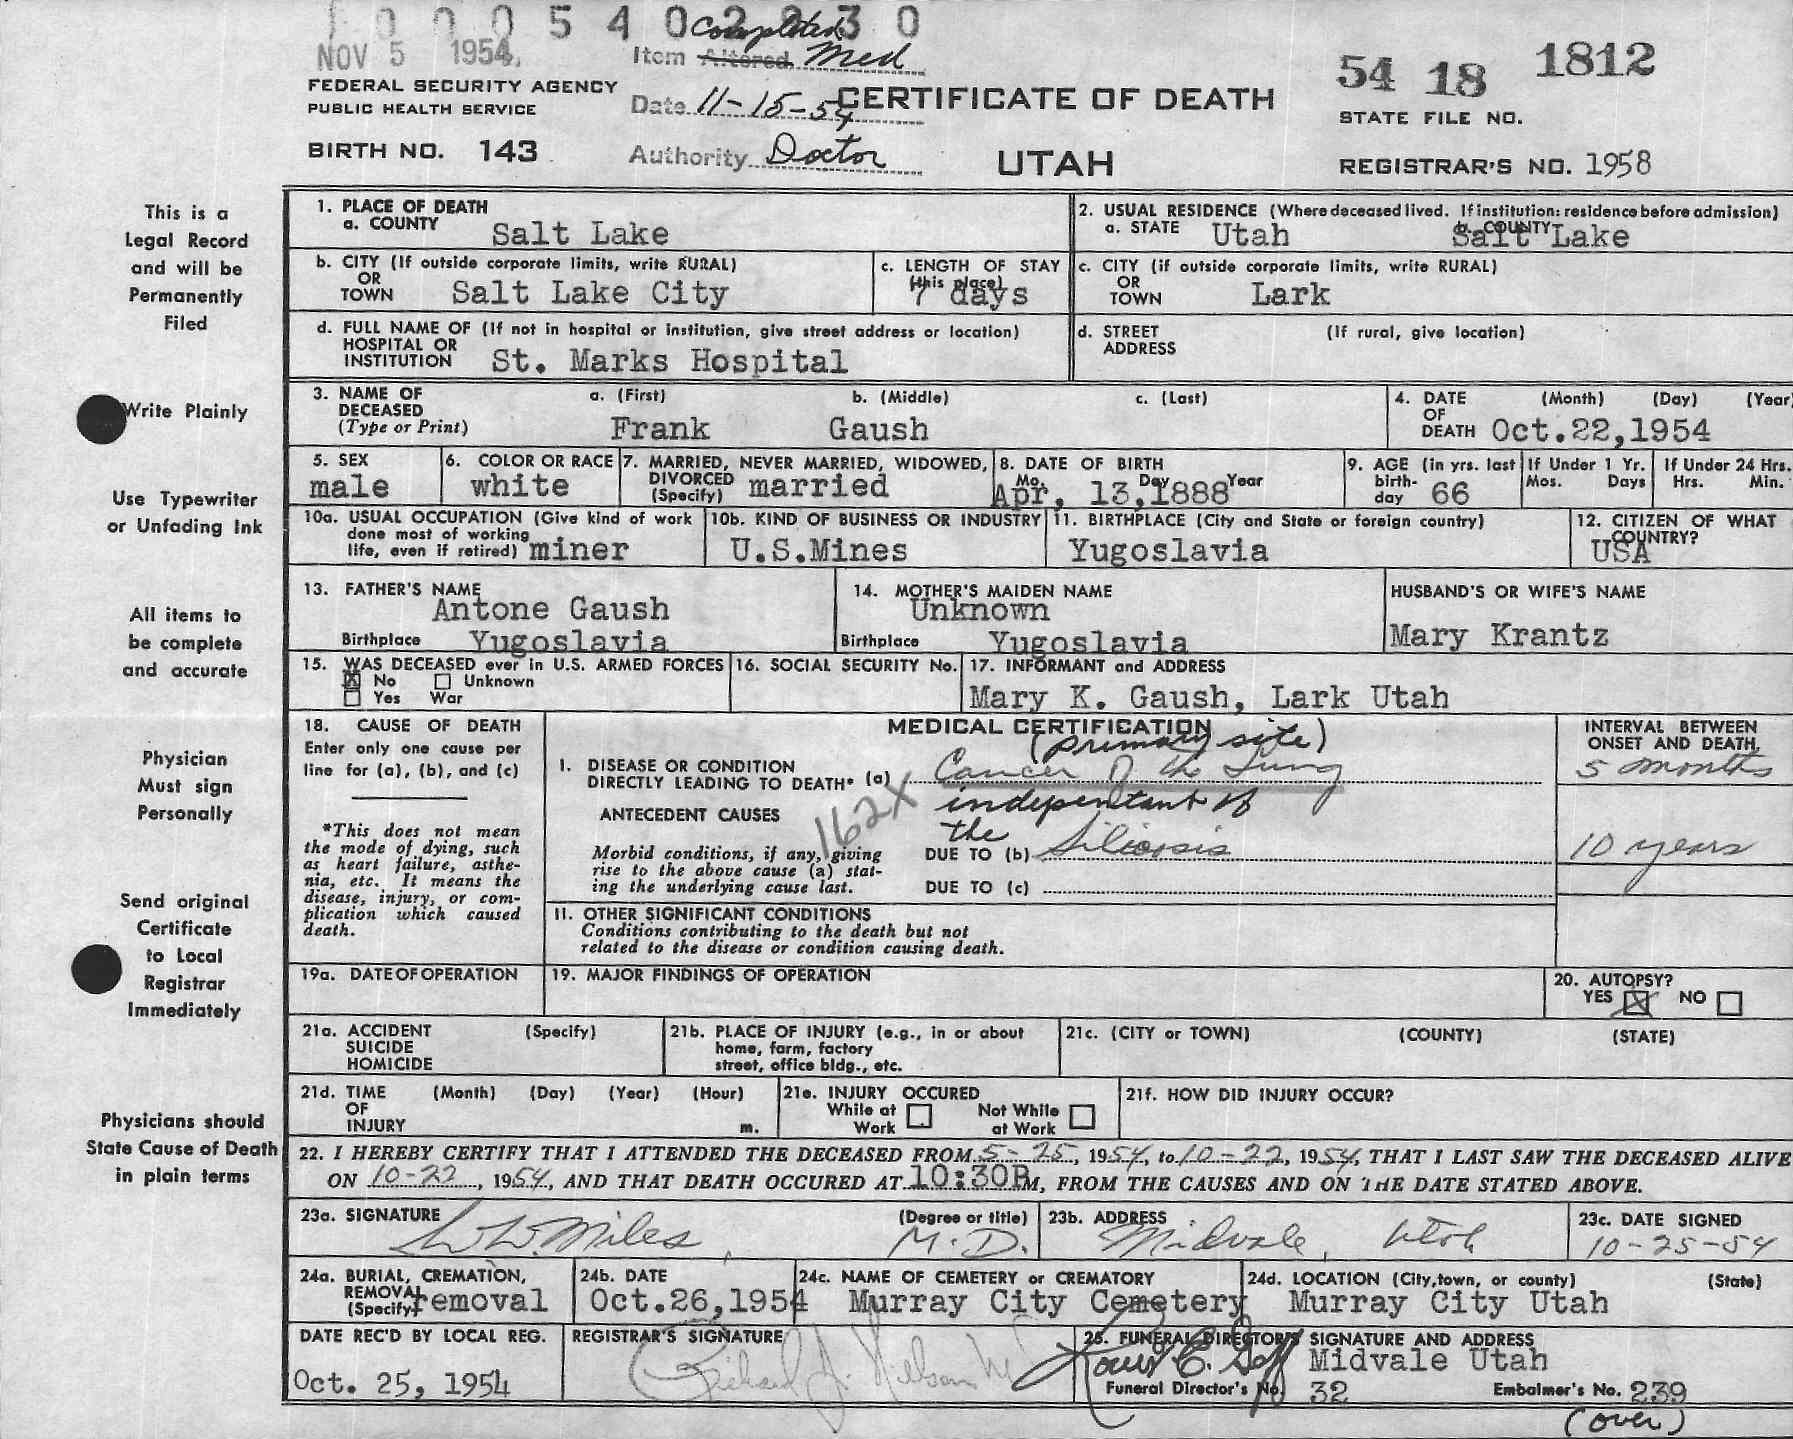 0 0 0 5 4 0 2 2 3 0
NOV 5 1954
Completed
Item Altered Med
Date 11-15-54
Authority Doctor
FEDERAL SECURITY AGENCY
PUBLIC HEALTH SERVICE
BIRTH NO. 143
CERTIFICATE OF DEATH
UTAH
54 18 1812
STATE FILE NO.
REGISTRAR'S NO. 1958
This is a
Legal Record
and will be
Permanently
Filed
Write Plainly
Use Typewriter
or Unfading Ink
All items to
be complete
and accurate
Physician
Must sign
Personally
Send original
Certificate
to Local
Registrar
Immediately
Physicians should
State Cause of Death
in plain terms
1. PLACE OF DEATH
a. COUNTY Salt Lake
2. USUAL RESIDENCE (Where deceased lived. If institution: residence before admission)
a. STATE Utah b. COUNTY Salt Lake
b. CITY (If outside corporate limits, write RURAL)
OR
TOWN Salt Lake City
c. LENGTH OF STAY
(this place)
7 days
c. CITY (if outside corporate limits, write RURAL)
OR
TOWN Lark
d. FULL NAME OF (If not in hospital or institution, give street address or location)
HOSPITAL OR
INSTITUTION St. Marks Hospital
d. STREET (If rural, give location)
ADDRESS
3. NAME OF a. (First) b. (Middle) c. (Last)
DECEASED
(Type or Print) Frank Gaush
4. DATE (Month) (Day) (Year)
OF
DEATH Oct.22,1954
5. SEX
male
6. COLOR OR RACE
white
7. MARRIED, NEVER MARRIED, WIDOWED,
DIVORCED
(Specify) married
8. DATE OF BIRTH
Mo. Day Year
Apr, 13,1888
9. AGE (in yrs. last
birth-
day 66
If Under 1 Yr.
Mos. Days
If Under 24 Hrs.
Hrs. Min.
10a. USUAL OCCUPATION (Give kind of work
done most of working
life, even if retired) miner
10b. KIND OF BUSINESS OR INDUSTRY
U.S.Mines
11. BIRTHPLACE (City and State or foreign country)
Yugoslavia
12. CITIZEN OF WHAT
COUNTRY?
USA
13. FATHER'S NAME
Antone Gaush
Birthplace Yugoslavia
14. MOTHER'S MAIDEN NAME
Unknown
Birthplace Yugoslavia
HUSBAND'S OR WIFE'S NAME
Mary Krantz
15. WAS DECEASED ever in U.S. ARMED FORCES
X No Unknown
Yes War
16. SOCIAL SECURITY No.
17. INFORMANT and ADDRESS
Mary K. Gaush, Lark Utah
18. CAUSE OF DEATH
Enter only one cause per
line for (a), (b), and (c)
*This does not mean
the mode of dying, such
as heart failure, asthe-
nia, etc. It means the
disease, injury, or com-
plication which caused
death.
MEDICAL CERTIFICATION
(primary site)
I. DISEASE OR CONDITION
DIRECTLY LEADING TO DEATH* (a) Cancer of the Lung
162X
ANTECEDENT CAUSES
independant of
the
Morbid conditions, if any, giving
rise to the above cause (a) stat-
ing the underlying cause last.
DUE TO (b) Silicosis
DUE TO (c)
INTERVAL BETWEEN
ONSET AND DEATH
5 months
10 years
II. OTHER SIGNIFICANT CONDITIONS
Conditions contributing to the death but not
related to the disease or condition causing death.
19a. DATE OF OPERATION
19. MAJOR FINDINGS OF OPERATION
20. AUTOPSY?
YES X NO
21a. ACCIDENT (Specify)
SUICIDE
HOMICIDE
21b. PLACE OF INJURY (e.g., in or about
home, farm, factory
street, office bldg., etc.
21c. (CITY or TOWN) (COUNTY) (STATE)
21d. TIME (Month) (Day) (Year) (Hour)
OF
INJURY m.
21e. INJURY OCCURED
While at Work
Not While at Work
21f. HOW DID INJURY OCCUR?
22. I HEREBY CERTIFY THAT I ATTENDED THE DECEASED FROM 5-25, 1954, to 10-22, 1954, THAT I LAST SAW THE DECEASED ALIVE
ON 10-22, 1954, AND THAT DEATH OCCURED AT 10:30P M, FROM THE CAUSES AND ON THE DATE STATED ABOVE.
23a. SIGNATURE (Degree or title)
W. Miles, M.D.
23b. ADDRESS
Midvale, Utah
23c. DATE SIGNED
10-25-54
24a. BURIAL, CREMATION,
REMOVAL
(Specify) removal
24b. DATE
Oct.26,1954
24c. NAME OF CEMETERY or CREMATORY
Murray City Cemetery
24d. LOCATION (City, town, or county) (State)
Murray City Utah
DATE REC'D BY LOCAL REG.
Oct. 25, 1954
REGISTRAR'S SIGNATURE
Richard J. Nelson
25. FUNERAL DIRECTOR'S SIGNATURE AND ADDRESS
Louis C. Goff Midvale Utah
Funeral Director's No. 32 Embalmer's No. 239
(over)